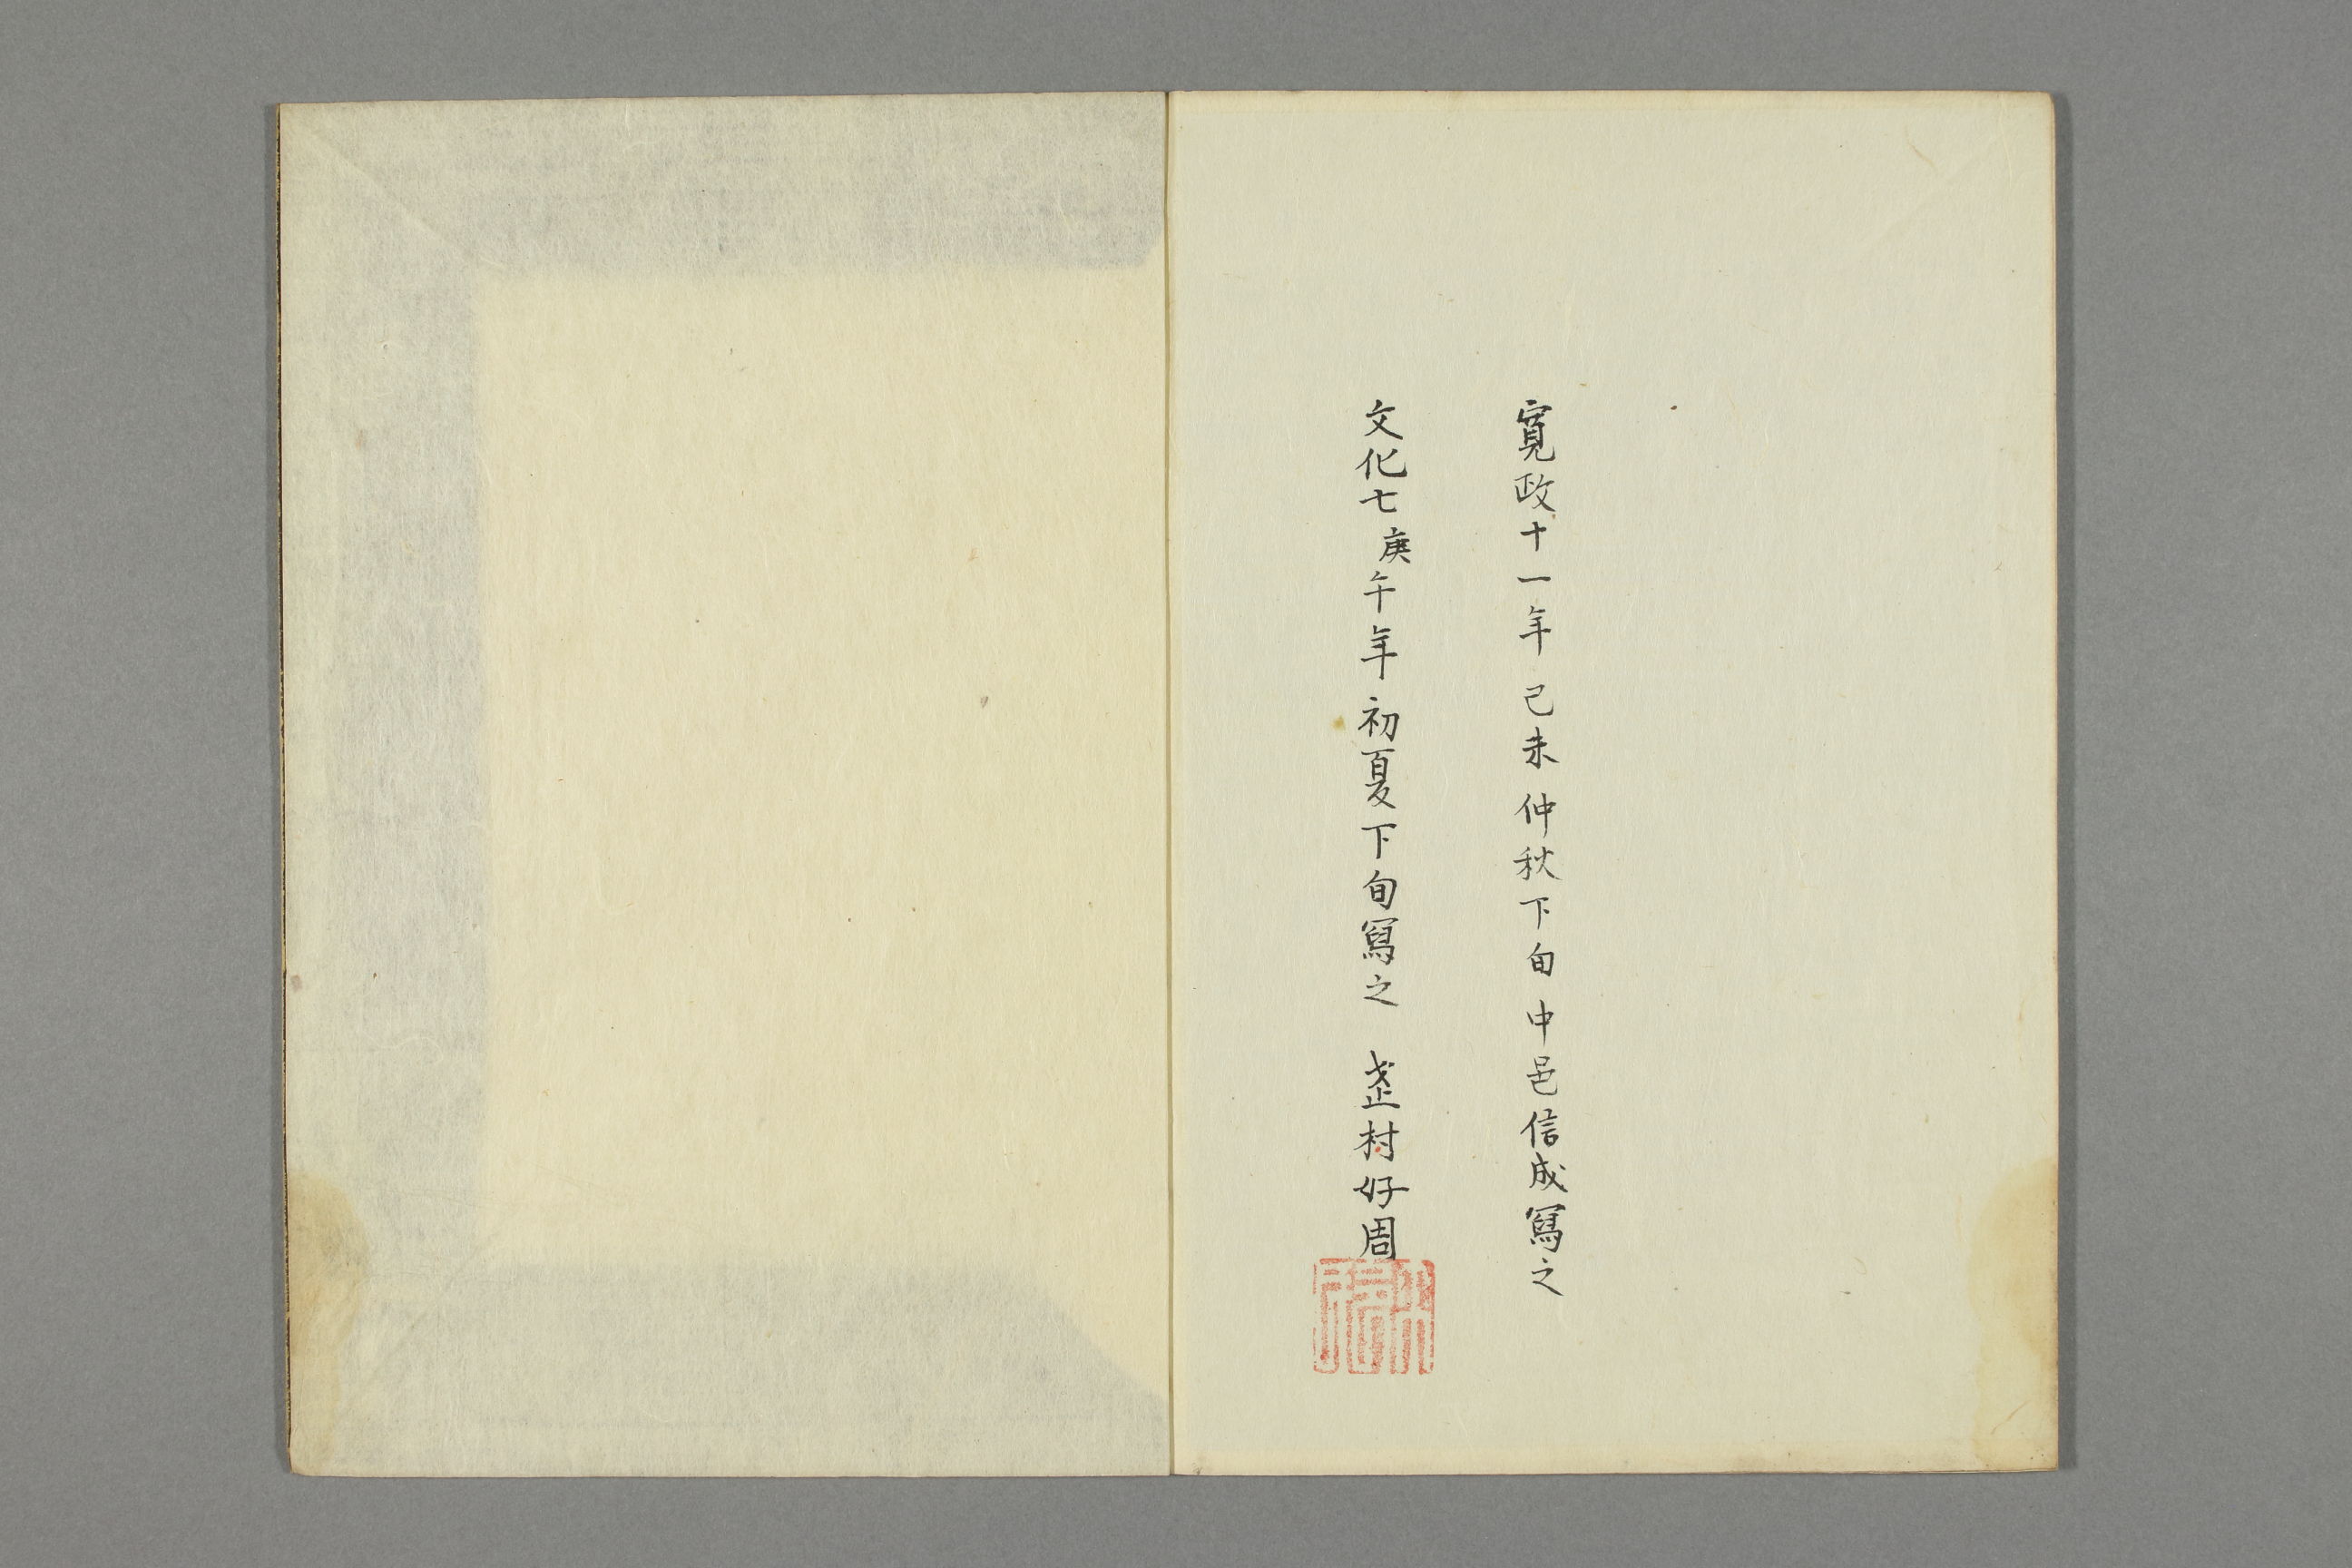 寛政十一年己未仲秋下旬中邑信成寫之
文化七庚午年初夏下旬寫之 村好周